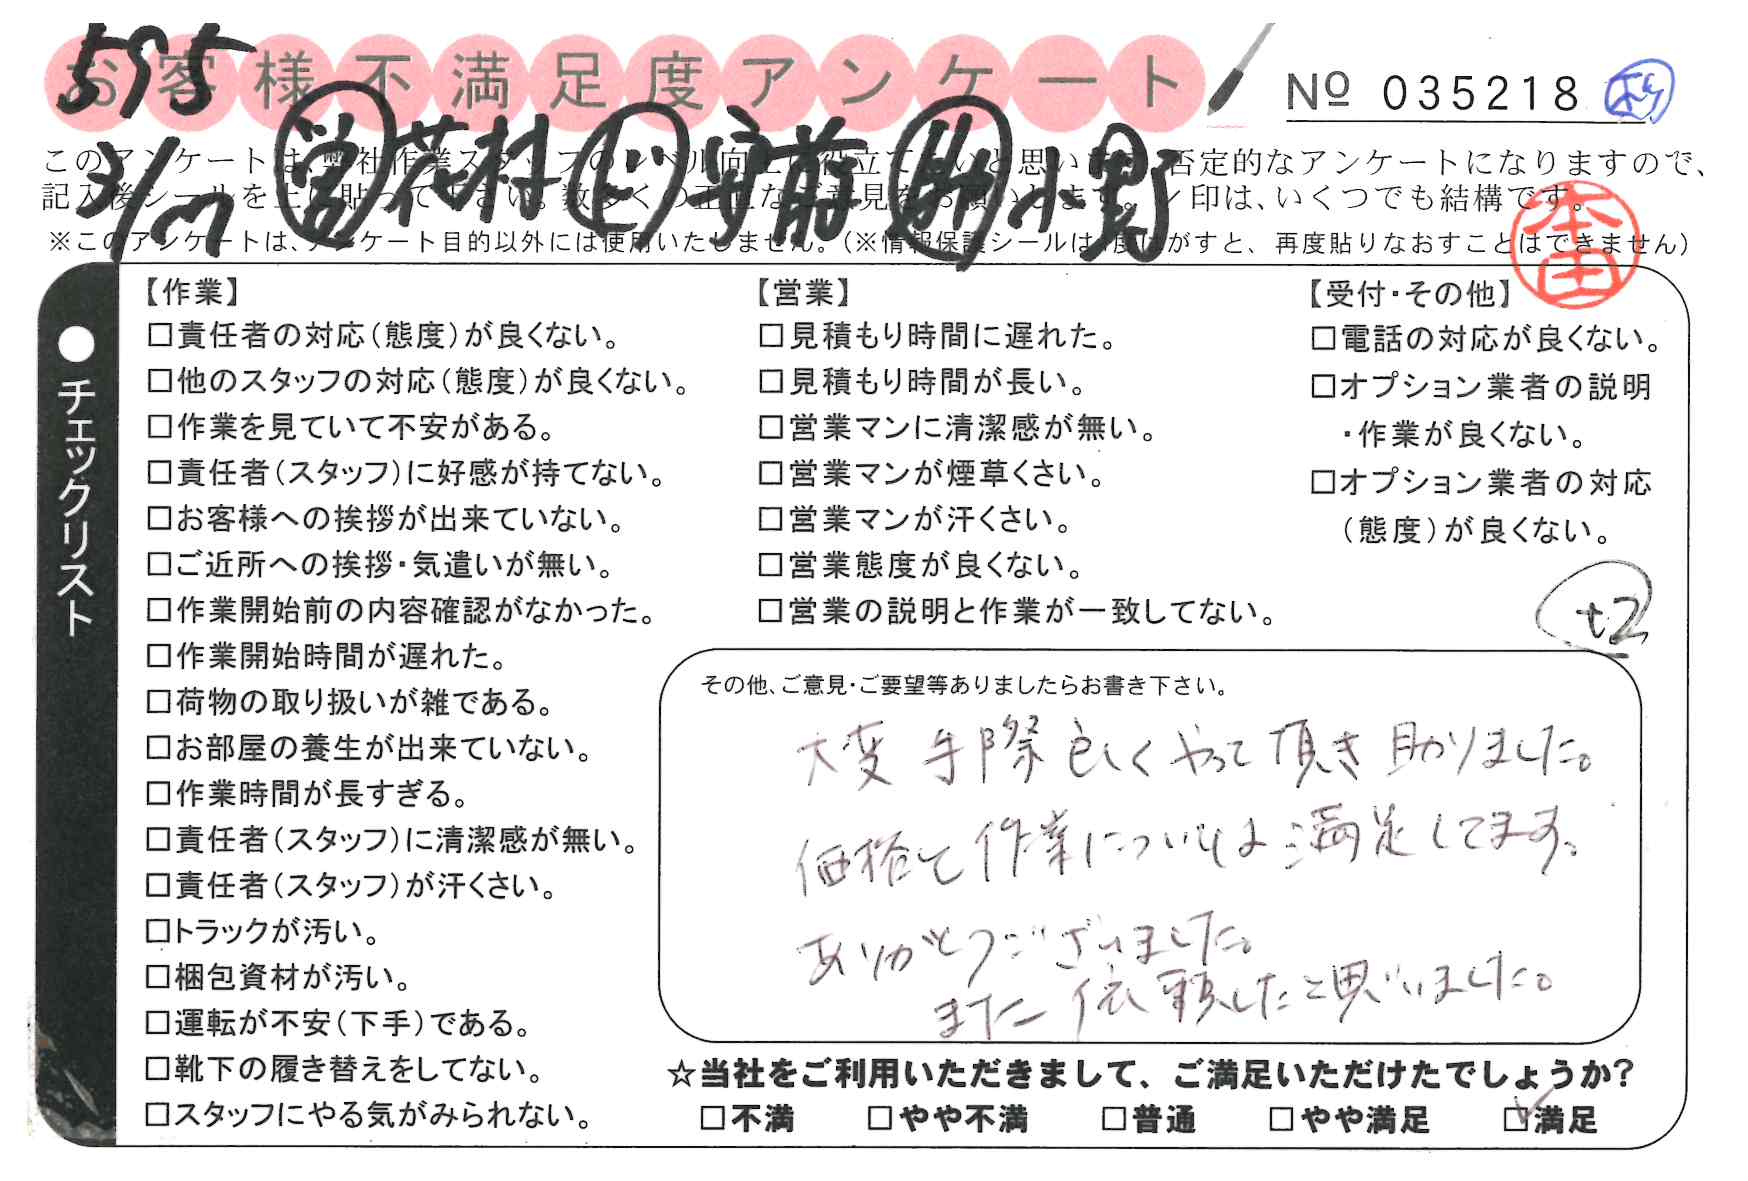 595
お客様不満足度アンケート
Nº 035218
3/17 営 花村 ヒ 安前 助 小野
このアンケートは、弊社作業スタッフのレベル向上に役立てたいと思います。否定的なアンケートになりますので、
記入後シールを上に貼って下さい。数多くの正直なご意見をお願いします。✓印は、いくつでも結構です。
※このアンケートは、アンケート目的以外には使用いたしません。(※情報保護シールは1度はがすと、再度貼りなおすことはできません)
本田
●チェックリスト
【作業】
□責任者の対応(態度)が良くない。
□他のスタッフの対応(態度)が良くない。
□作業を見ていて不安がある。
□責任者(スタッフ)に好感が持てない。
□お客様への挨拶が出来ていない。
□ご近所への挨拶・気遣いが無い。
□作業開始前の内容確認がなかった。
□作業開始時間が遅れた。
□荷物の取り扱いが雑である。
□お部屋の養生が出来ていない。
□作業時間が長すぎる。
□責任者(スタッフ)に清潔感が無い。
□責任者(スタッフ)が汗くさい。
□トラックが汚い。
□梱包資材が汚い。
□運転が不安(下手)である。
□靴下の履き替えをしてない。
□スタッフにやる気がみられない。
【営業】
□見積もり時間に遅れた。
□見積もり時間が長い。
□営業マンに清潔感が無い。
□営業マンが煙草くさい。
□営業マンが汗くさい。
□営業態度が良くない。
□営業の説明と作業が一致してない。
【受付・その他】
□電話の対応が良くない。
□オプション業者の説明
・作業が良くない。
□オプション業者の対応
(態度)が良くない。
+2
その他、ご意見・ご要望等ありましたらお書き下さい。
大変手際良くやって頂き助かりました。
価格と作業については満足してます。
ありがとうございました。
また依頼したと思いました。
☆当社をご利用いただきまして、ご満足いただけたでしょうか?
□不満 □やや不満 □普通 □やや満足 ☑満足